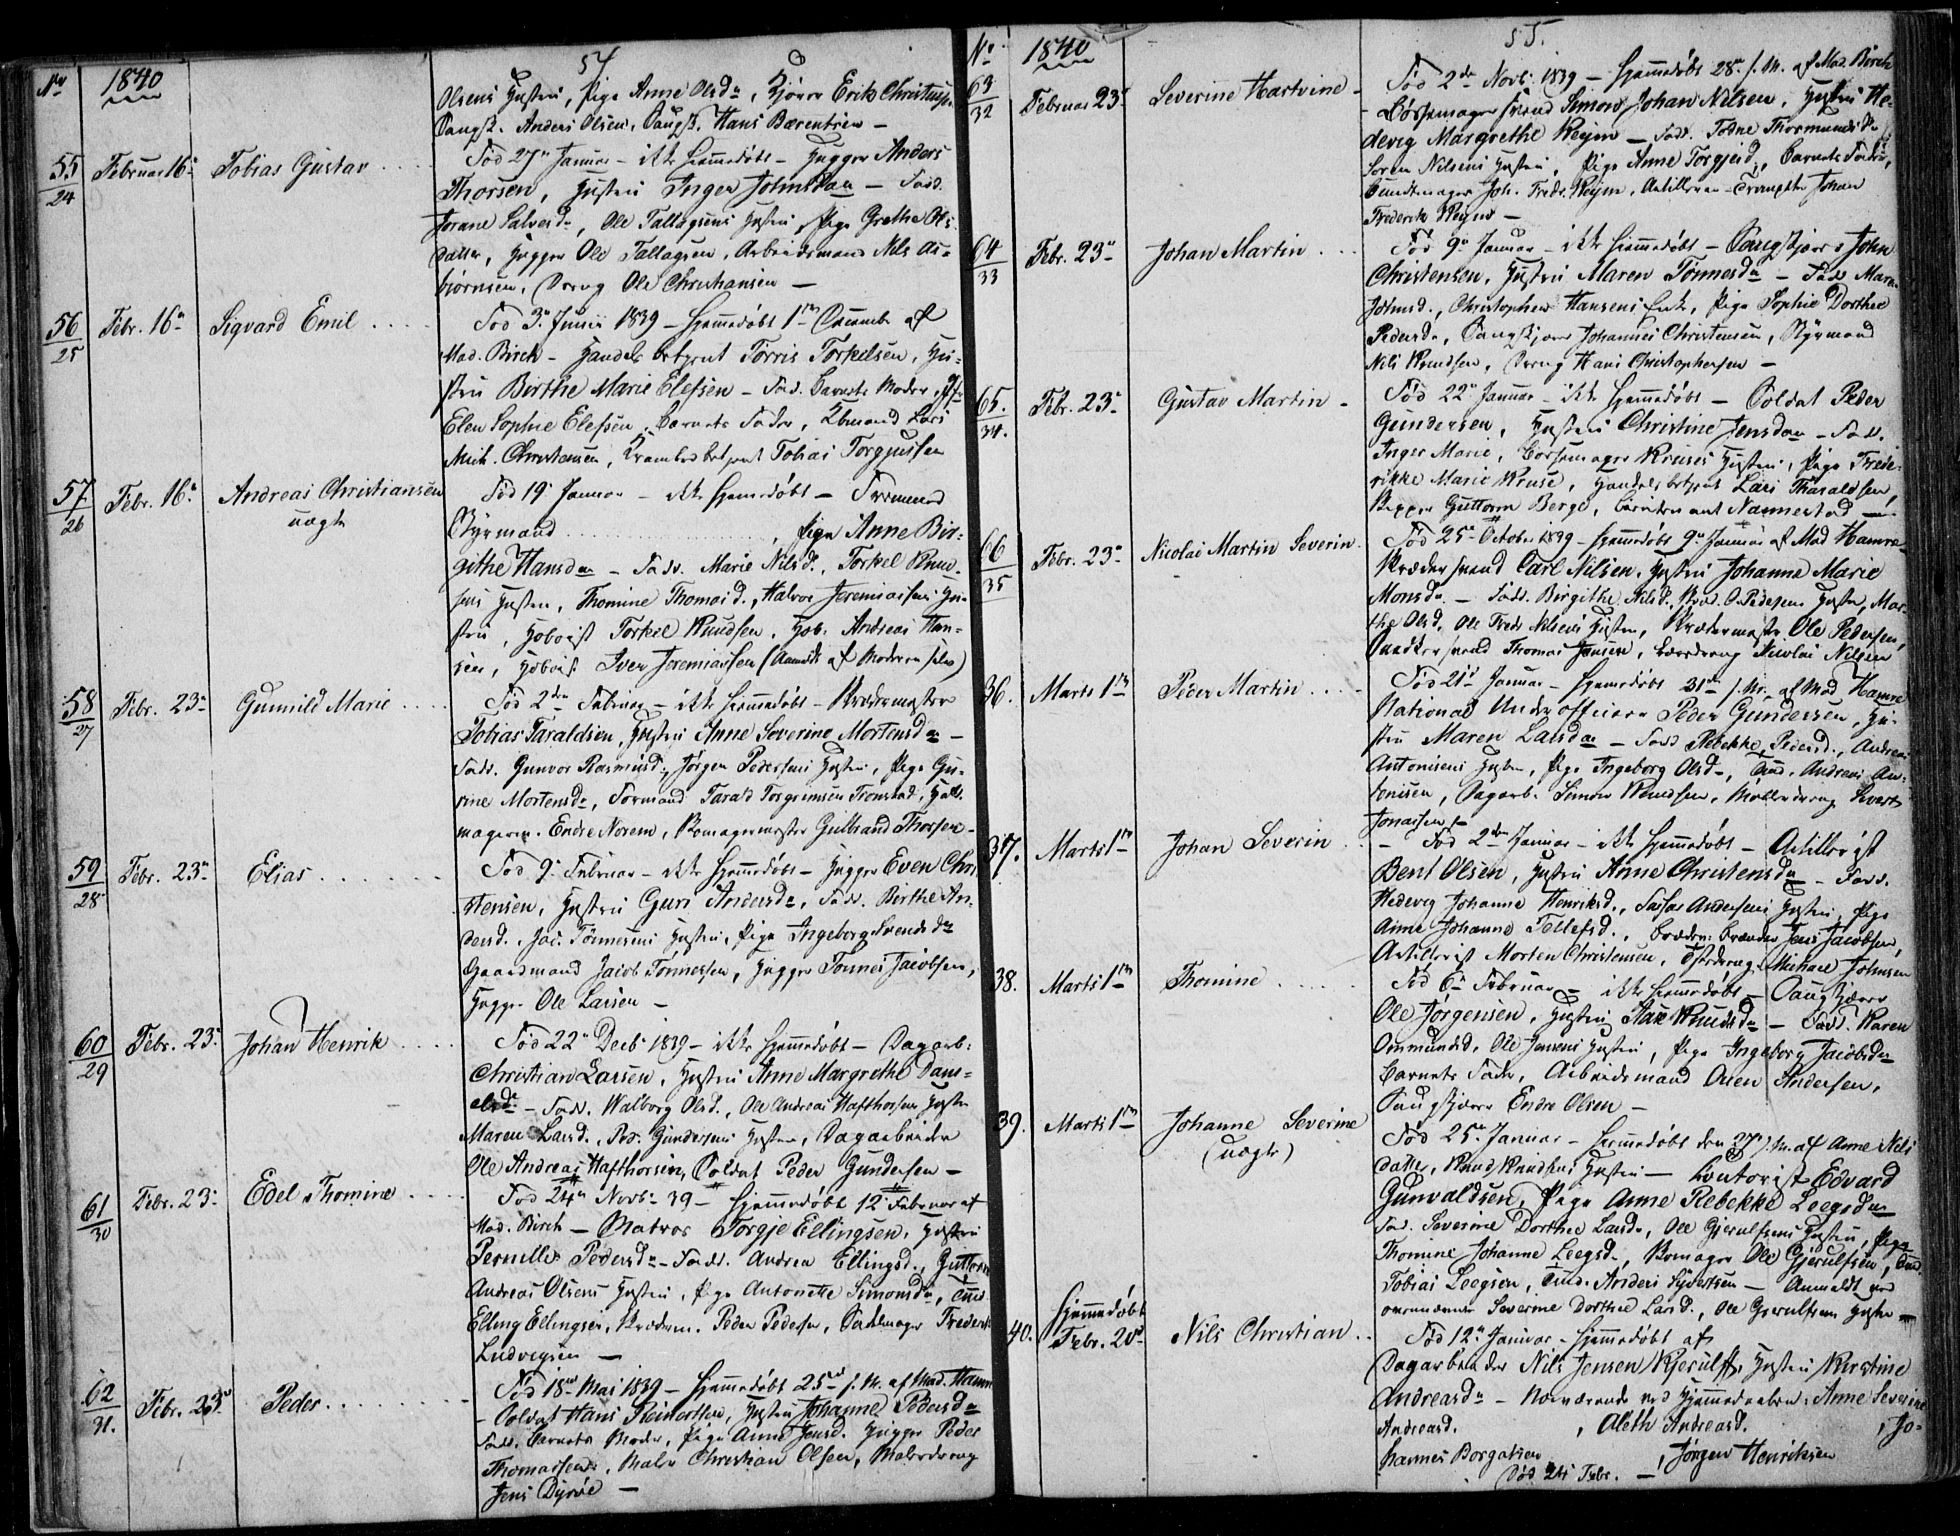 54
No 1840
Olsens Hustru, Pige Anne Olsd., Kjører Erik Christens.
Anders Olsen, Hans Bærentsen —
55/24 Februar 16. Tobias Gustav . . . Fød 27. Januar – ikke hjemmedøbt – Hugger Anders
Thorsen, Hustru Inger Johnsda — Fadd.
Jorane Salvesd., Ole Tallagsens Hustru, Pige Grethe Ols
datter, Hugger Ole Tallagsen, Arbeidsmand Nils As-
biørnsen, Dreng Ole Christiansen —
56/25 Febr. 16. Sigvard Emil . . . . Fød 3. Junii 1839 – Hjemmedøbt 1ste Decembr af
Mad. Birch – Handels betjent Torris Torkelsen, Hu-
stru Birthe Marie Elefsen – Fad. Barnets Moder,
Elen Sophie Elefsen, Barnets Fader, Lars
Mich. Christensen, Kramboebetjent Tobias Torgjussen
57/26 Febr. 16. Andreas Christiansen Fød 19. Januar – ikke hjemmedøbt –
uægte Styrmand . . . . . . . . , Pige Anne Bir-
githe Hansda – Fadd. Marie Nilsd., Torkel Knud-
sens Hustru, Thomine Thomasd., Halvor Jeremiassens Hu-
stru, Hoboist Torkel Knudsen, Hob. Andreas Han-
sen, Hoboist Iver Jeremiassen (Anmeldt af Moderen selv)
58/27 Febr. 23. Gunnild Marie . . . . Fød 2den Februar – ikke hjemmedøbt – Skrædermester
Tobias Taraldsen, Hustru Anne Severine Mortensda –
Fadd. Gunvor Rasmusd., Jørgen Pedersens Hustru, Pige Gu-
rine Mortensd., Formand Tarald Torgrimsen Tronstad, Hatte-
magersv. Endre Norem, Skomagermester Gulbrand Thorsen –
59/28 Febr. 23. Elias . . . . . . Fød 9. Februar – ikke hjemmedøbt – Hugger Even Chri
stensen, Hustru Guri Andersd., Fadd. Birthe An-
dersd., Jac. Tønnesens Hustru, Pige Ingeborg Svends dr
Gaardmand Jacob Tønnessen, Hugger Tønnes Jacobsen,
Hugger Ole Larsen —
60/29 Febr. 23. Johan Henrik . . . . Fød 22. Decbr 1839 – ikke hjemmedøbt – Dagarb.
Christian Larsen, Hustru Anne Margrethe Dani-
elsdr – Fadd. Walborg Olsd., Ole Andreas Hafthorsens Hustru
Maren Larsd., Ped. Gundersens Hustru, Dagarbeider
Ole Andreas Hafthorsen, Soldat Peder Gundersen –
61/30 Febr. 23. Edel Thomine . . . . Fød 24. Novbr 39 – Hjemmedøbt 12 Februar af
Mad. Birch – Matros Torgje Ellingsen, Hustru
Pernille Pedersd. – Fadd. Andrea Ellingsd., Guttorm
Andreas Olsens Hustru, Pige Antonette Simonsd.,
Elling Ellingsen, Skræderm. Peder Pedersen, Sadelmager Frederik
Ludvigsen —
62/31. Febr. 23. Peder . . . . . . . Fød 18. Mai 1839 – Hjemmedøbt 25. s. M. af Mad. Hamre
– Soldat Hans Reinertsen, Hustru Johanne Pedersda
Fadd. Barnets Moder, Pige Anne Jensd. Hugger Peder
Thomassen, Maler Christian Olsen, Malerdreng
Jens Dyrøe —
55.
No 1840
63/32 Februar 23. Severine Hartvine – Fød 2den Novbr. 1839 – Hjemmedøbt 28. s. M. af Mad. Birch
– Bøssemager svend Simon Johan Nilsen, Hustru He-
devig Margrethe Reym – Fadd. Todne Thormundsd.
Søren Nilsens Hustru, Pige Anne Torgjersd., Barnets Fader,
Buntmager Joh. Fredr. Reym, Johan
Frederik Reym —
64/33 Febr. 23. Johan Martin . . . Fød 9. Januar – ikke hjemmedøbt – John
Christensen, Hustru Maren Tønnesda – Fadd. Maren
Johnsd., Christopher Hansens Enke, Pige Sophie Dorthee
Pedersd., Johannes Christensen, Styrmand
Nils Knudsen, Dreng Hans Christophersen —
65./34. Febr. 23. Gustav Martin – Fød 22. Januar – ikke hjemmedøbt – Soldat Peder
Gundersen, Hustru Christine Jensdan – Fadd.
Inger Marie, Børsemager Kruses Hustru, Pige Frede-
rikke Marie Kruse, Handels betjent Lars Tharaldsen,
Skipper Guttorm Berge, Nannestad —
66/35 Febr. 23. Nicolai Martin Severin. Fød 25. October 1839 – Hjemmedøbt 9. Januar af Mad Hamre
Skræder svend Carl Nilsen, Hustru Johanna Marie
Monsd. – Fadd. Birgithe Nilsd., Skræd. O. Pedersens Hustru, Mar-
the Olsd. Ole Fredr Nilsens Hustru, Skrædermester Ole Pedersen,
Snedker svend Thomas Jansen, Læredreng Nicolai Nilsen
36. Marts 1ste Peder Martin . . . . Fød 21. Januar – Hjemmedøbt 31te s. M. af Mad Hamre
National Underofficeer Peder Gundersen, Hu-
stru Maren Larsdan – Fadd Rebekke Pedersd., Andreas
Antonisens Hustru, Pige Ingeborg Olsd., Andreas An-
tonisen, Dagarb. Simon Knudsen, Møllerdreng Sivert
Jonassen —
37. Marts 1ste Johan Severin . . – Fød 2den Januar – ikke hjemmedøbt – Artillerist
Bent Olsen, Hustru Anne Christensd. – Fadd.
Hedevig Johanne Henriksd., Andersens Hustru, Pige
Anne Johanne Tellefsd., Jens Jacobsen,
Artillerist Morten Christensen, Michael Johnsen
38. Marts 1ste Thomine . . . . . Fød 6. Februar – ikke hjemmedøbt –
Ole Jørgensen, Hustru Aase Knudsd. – Fadd. Karen
Ommundsd., Ole Jensens Hustru, Pige Ingeborg Jacobsd.
Barnets Fader, Arbeidsmand Oven Andersen,
Endre Olsen —
39. Marts 1ste Johanne Severine Fød 25. Januar – Hjemmedøbt den 27. s. M. af Anne Nils
(uægte) datter, Knud Knudsens Hustru — Edvard
Gunvaldsen, Pige Anne Rebekke Leegsdan
Fad. Severine Dorthee Larsd., Ole Gjerulfsens Hustru, Pige
Thomine Johanne Leegsd., Skomager Ole Gjerulfsen,
Tobias Leegsen, Anders Sivertsen – Anmeldt ved
ovennævnte Severine Dorthee Larsd., Ole Gjerulfsens Hustru —
Hjemmedøbt
40. Febr. 20. Nils Christian . . Fød 12. Januar – hjemmedøbt af
Dagarbeider Nils Jensen Kjerulf, Hustru Kirstine
Andreasd. – Nærværende ved Hjemmedaaben: Anne Severine
Andreasd. , Aleth Andreasd. , Jo-
hannes Borgersen , Jørgen Henriksen
Død 24 Febr. —